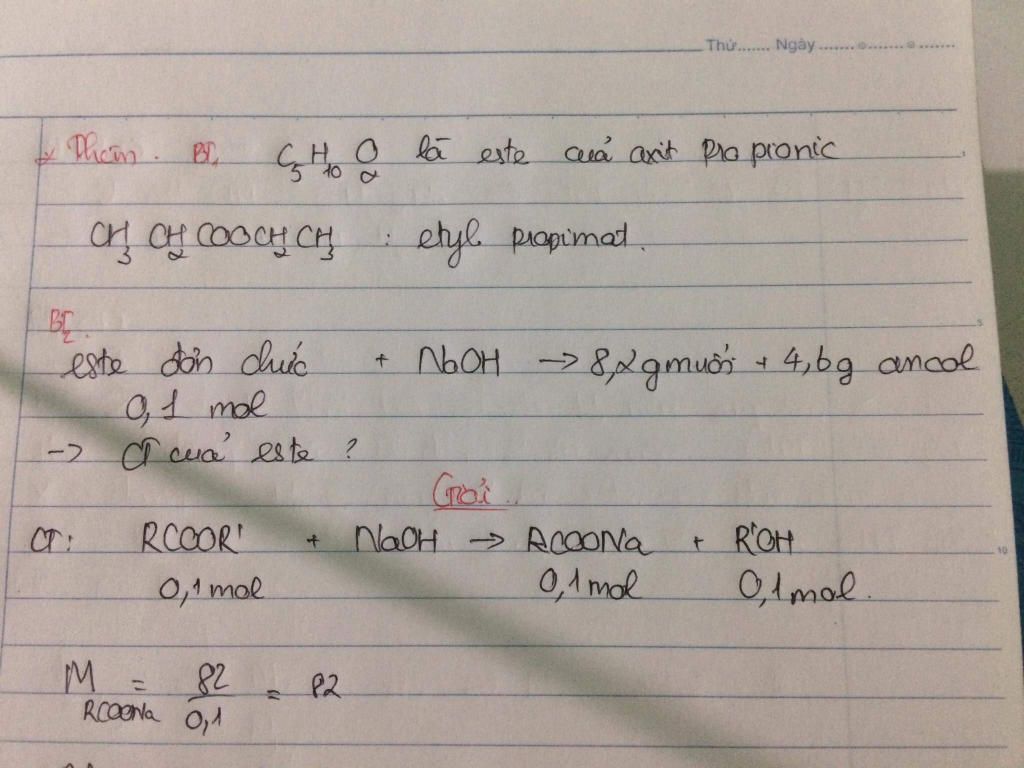 Thứ....... Ngày ....... ....... .......
BT1 C5H10O2 là este của axit propionic
CH3CH2COOCH2CH3 : etyl propimat.
BT2.
este đơn chức + NaOH → 8,2g muối + 4,6g ancol
0,1 mol
→ CT của este ?
Giải
CT: RCOOR' + NaOH → RCOONa + R'OH
0,1 mol 0,1 mol 0,1 mol.
M RCOONa = 82/0,1 = 82